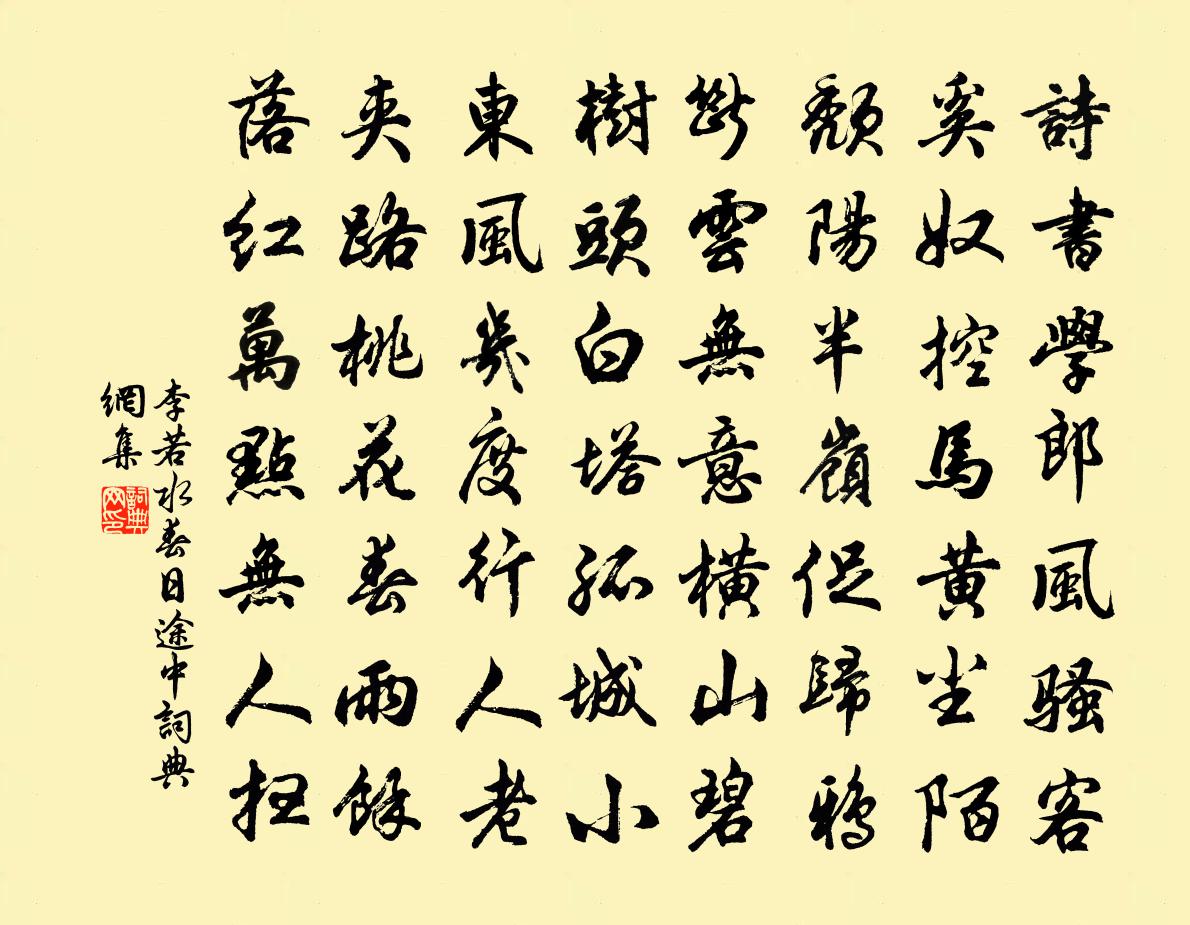 詩書學郎風騷客
奚奴控馬黃塵陌
頹陽半嶺促歸鴉
斷雲無意橫山碧
樹頭白塔孤城小
東風幾度行人老
夾路桃花春雨餘
落紅萬點無人掃
李若水春日途中詞典
網集
詞典
网印